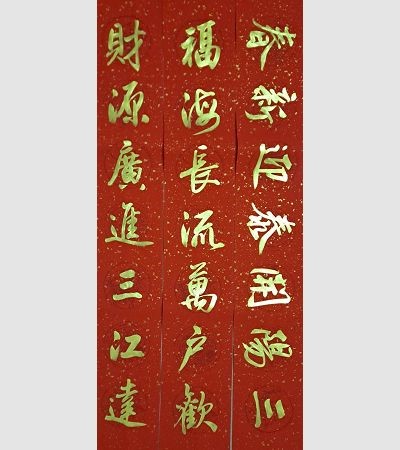 財源廣進三江達
福海長流萬户歡
三陽開泰迎新春